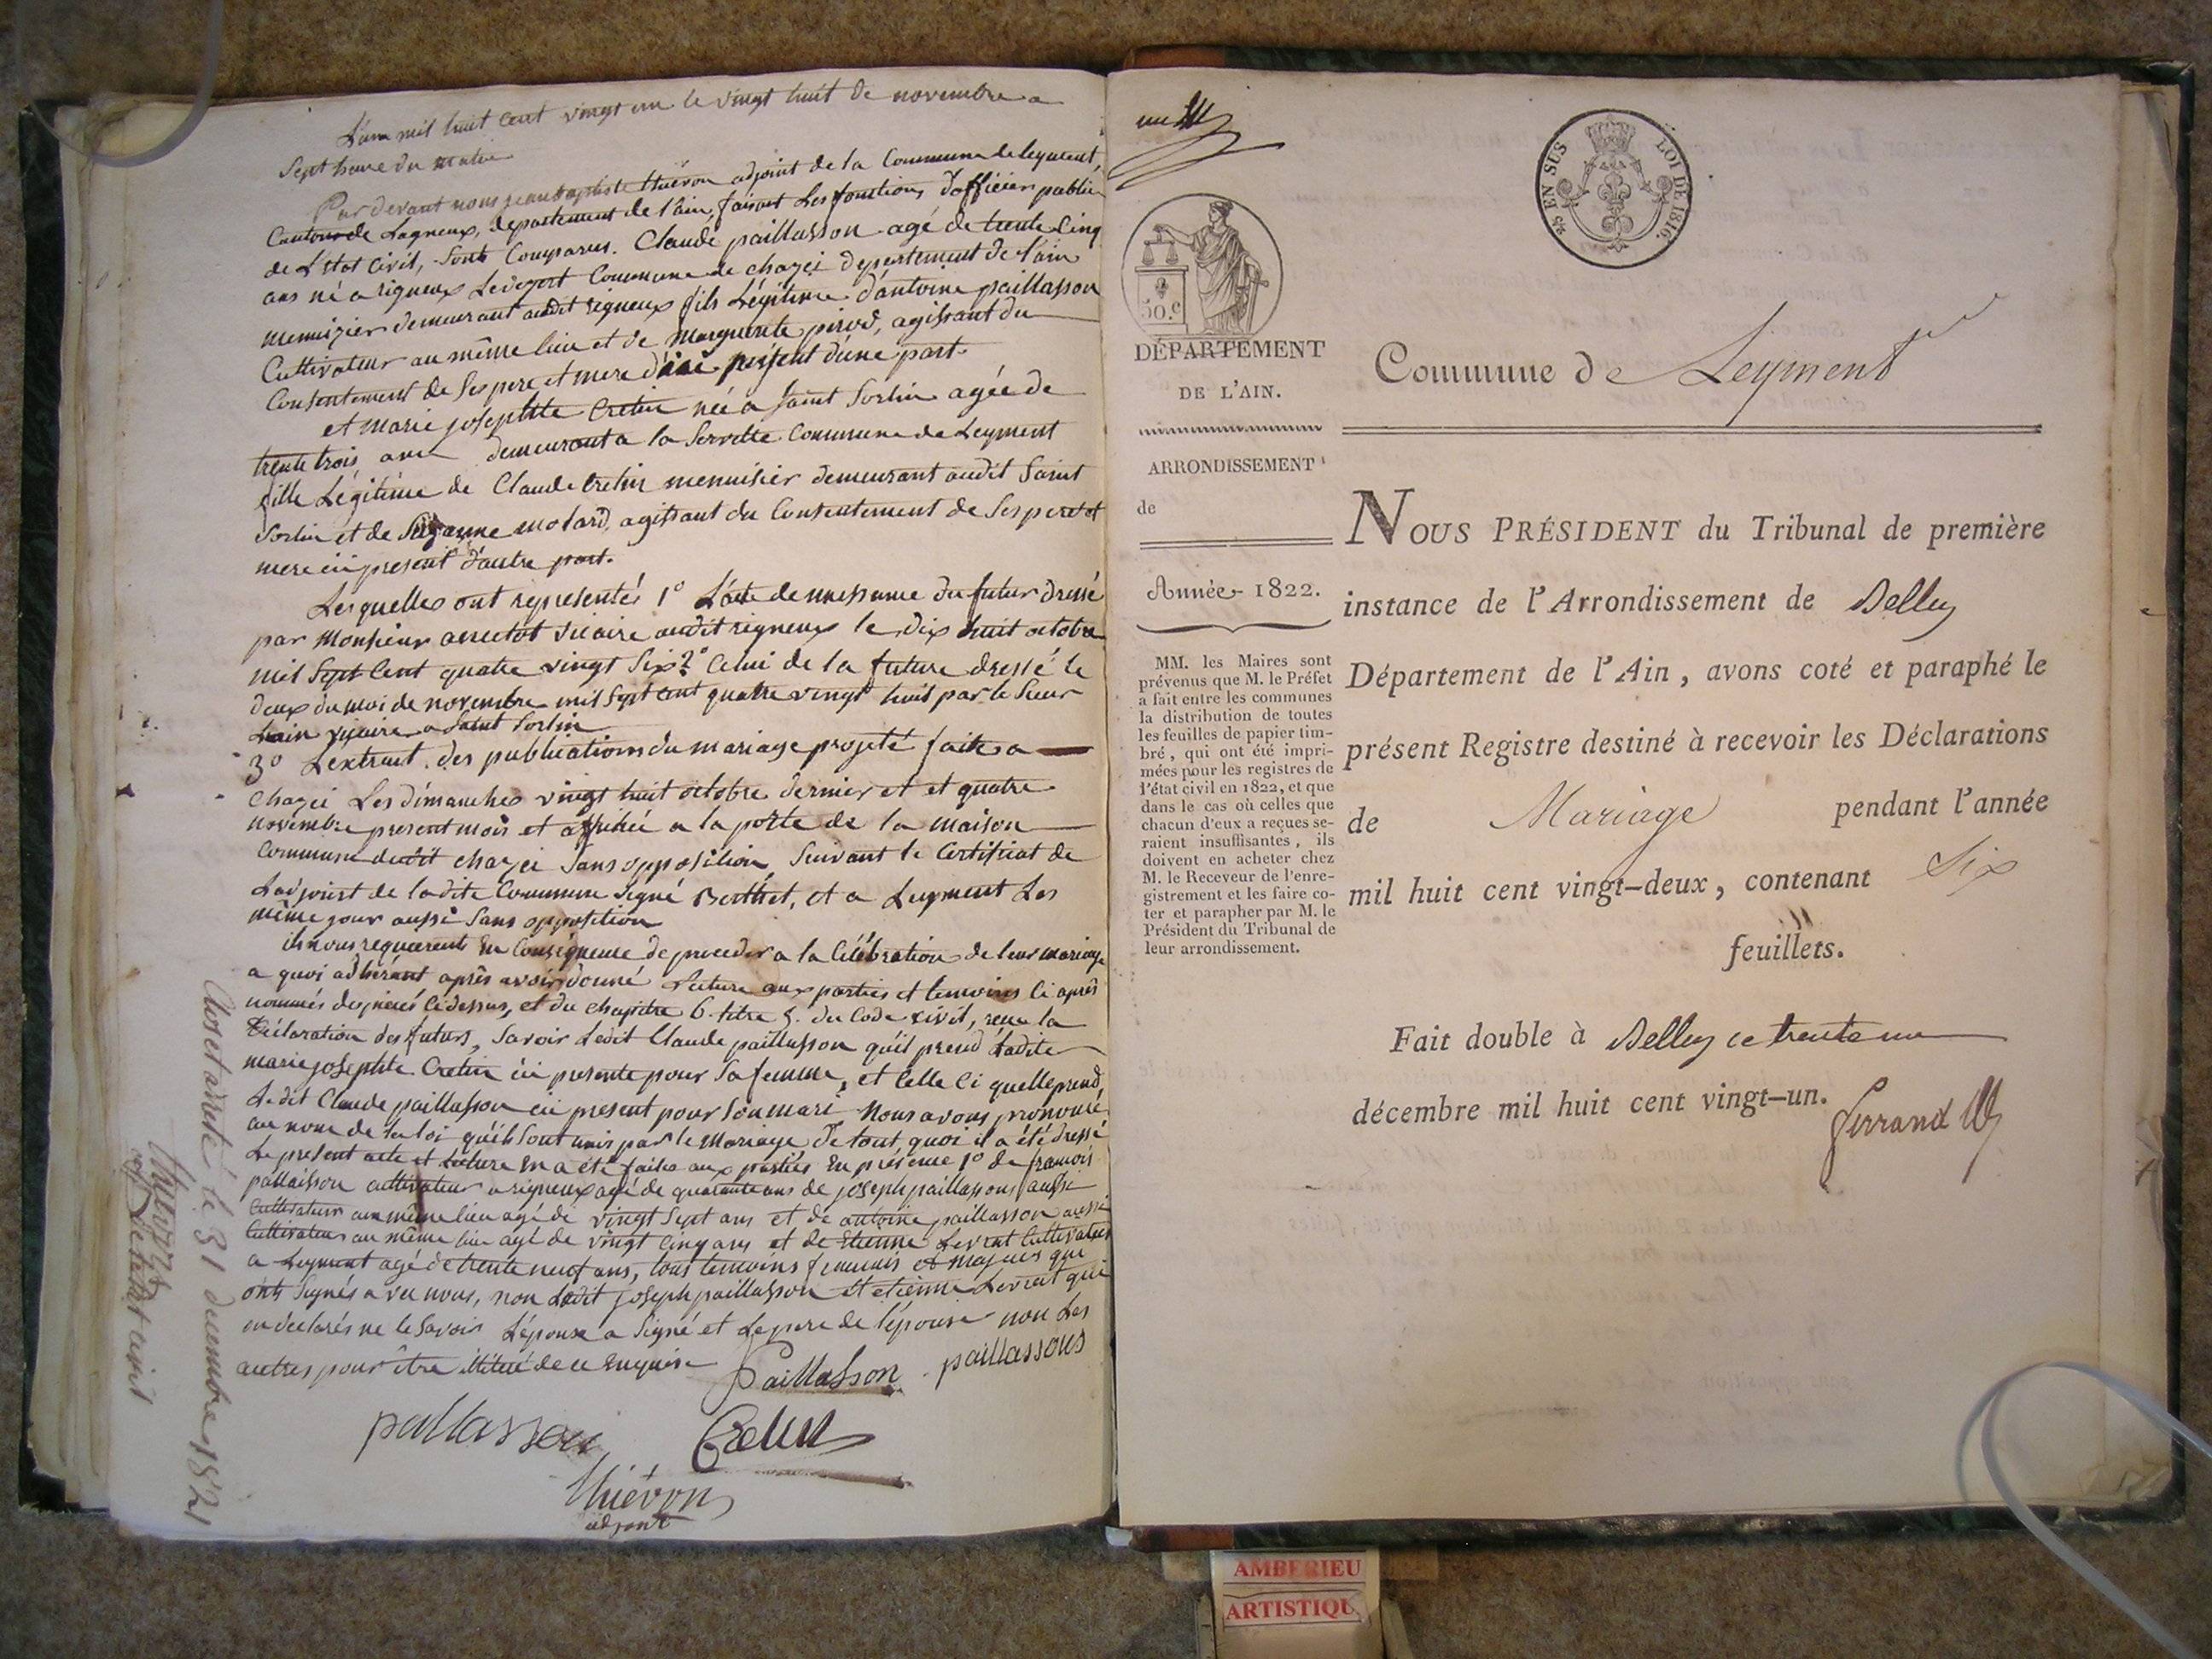 L'an mil huit cent vingt un le vingt huit de novembre a
Sept heure du matin
Par devant nous jean baptiste thiévon adjoint de la Commune de leyment,
Canton de Lagneux, département de l'ain, faisant Les fonctions d'officier public
de L'état Civil, Sont Comparus. Claude paillasson agé de trente Cinq
ans né a rigneux Ledesert Commune de chazei département de l'ain
menuizier demeurant audit rigneux fils Légitime d'antoine paillasson
Cultivateur au même lieu et de Marguerite pirod, agissant du
Consentement de Ses pere et mere d'ici présent d'une part.
et marie josephte Cretin née a Saint Sorlin agée de
trente trois ans demeurant a la Servette Commune de Leyment
fille Légitime de Claude Cretin menuisier demeurant audit Saint
Sorlin et de Suzanne molard, agissant du Consentement de Ses pere et
mere ici present d'autre part.
Lesquelles ont representés 1° L'acte de naissance du futur dressé
par Monsieur vicaire audit rigneux le dix huit octobre
mil Sept Cent quatre vingt Six 2° Celui de la future dressé le
deux du moi de novembre mil Sept cent quatre vingt huit par le Sieur
vicaire a Saint Sorlin
3° L'extrait des publications du mariage projeté faites a
Chazei Les dimanches vingt huit octobre dernier et et quatre
novembre present mois et affichée a la porte de la maison
Commune dudit chazei Sans opposition Suivant le Certificat de
L'adjoint de ladite Commune Signé Berthet, et a Leyment Les
même jour aussi Sans opposition
ils nous requerent En Conséquence de proceder a la Célébration de leur mariage
a quoi adhérant après avoir donné Lecture aux parties et temoins Ci après
nommés des pièces Cidessus, et du chapitre 6. titre 5. du Code civil, reçu la
Déclaration des futurs, Savoir Ledit Claude paillasson qu'il prend Ladite
marie josephte Cretin ici presente pour Sa femme, et Celle Ci quelle prend
Ledit Claude paillasson ici present pour Son mari Nous avons prononcé
au nom de la loi qu'ils Sont unis par le Mariage De tout quoi il a été dressé
Le present acte et lecture En a été faite aux parties En présence 1° de francois
paillaisson cultivateur a rigneux agé de quarante ans de joseph paillassons aussi
Cultivateur au même lieu agé de vingt Sept ans et de antoine paillasson aussi
Cultivateur au même lieu agé de vingt Cinq ans et de Etienne Levrat Cultivateur
a Leyment agé de trente neuf ans, tous temoins et majeurs qui
onts Signés avec nous, non Ledit joseph paillasson et etienne Levrat qui
on déclarés ne le Savoir L'épouse a Signé et Le pere de l'épouse non Les
autres pour être de ce Enquis
Paillasson paillassons
paillasson Cretin
thiévon
adjoint
Clos et arreté le 31 decembre 1821
thiévon
off de l'état civil
un
25 EN SUS LOI DE 1816.
50.c
DÉPARTEMENT
DE L'AIN.
ARRONDISSEMENT
de
Année 1822.
MM. les Maires sont
prévenus que M. le Préfet
a fait entre les communes
la distribution de toutes
les feuilles de papier tim-
bré, qui ont été impri-
mées pour les registres de
l'état civil en 1822, et que
dans le cas où celles que
chacun d'eux a reçues se-
raient insuffisantes, ils
doivent en acheter chez
M. le Receveur de l'enre-
gistrement et les faire co-
ter et parapher par M. le
Président du Tribunal de
leur arrondissement.
Commune de Leyment
NOUS PRÉSIDENT du Tribunal de première
instance de l'Arrondissement de Belley
Département de l'Ain, avons coté et paraphé le
présent Registre destiné à recevoir les Déclarations
de Mariage pendant l'année
mil huit cent vingt-deux, contenant Six
feuillets.
Fait double à Belley ce trente un
décembre mil huit cent vingt-un.
Ferrand
AMBERIEU
ARTISTIQU